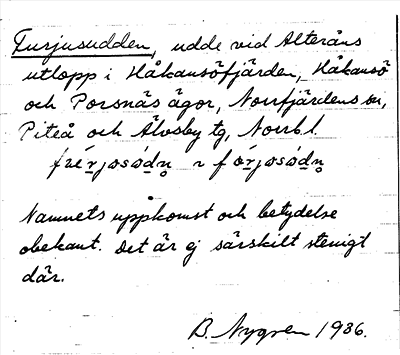 Furjusudden, udde vid Alteråns
utlopp i Håkansöfjärden, Håkansö
och Porsnäs ägor, Norrfjärdens sn,
Piteå och Älvsby tg, Norrb. l.
Namnets uppkomst och betydelse
obekant. Det är ej särskilt stenigt
där.
B. Nygren 1936.